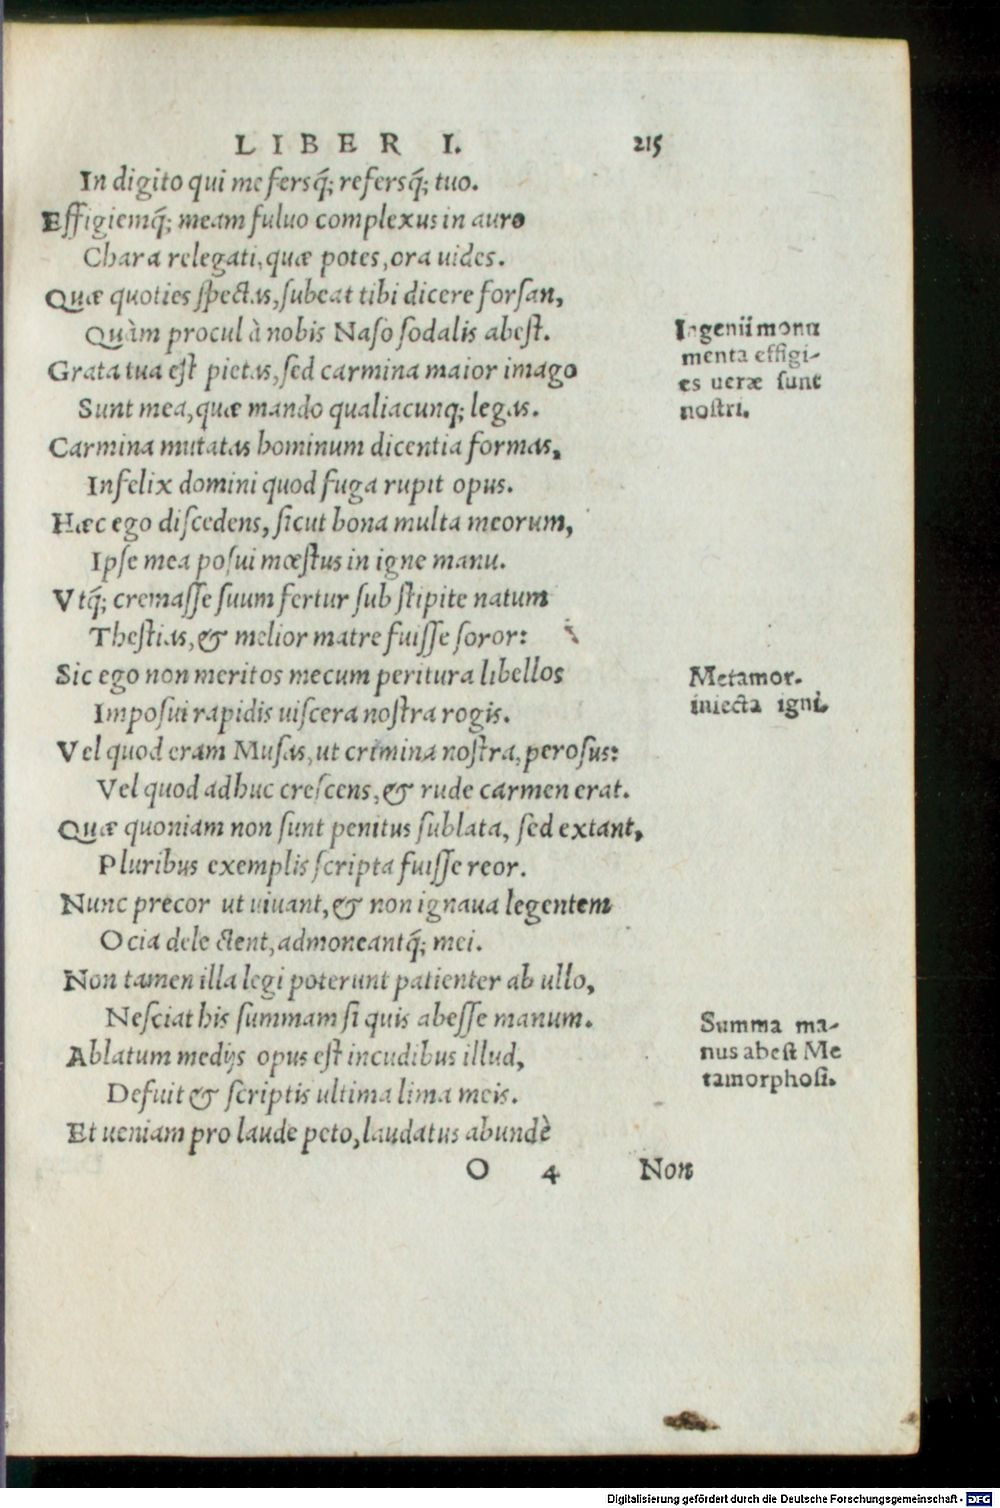 LIBER I. 215
In digito qui me fersq́; refersq́; tuo.
Effigiemq́; meam fuluo complexus in auro
Chara relegati, quæ potes, ora uides.
Quæ quoties spectas, subeat tibi dicere forsan,
Quàm procul à nobis Naso sodalis abest.
Grata tua est pietas, sed carmina maior imago
Sunt mea, quæ mando qualiacunq; legas.
Carmina mutatas hominum dicentia formas,
Infelix domini quod fuga rupit opus.
Hæc ego discedens, sicut bona multa meorum,
Ipse mea posui mœstus in igne manu.
Vtq́; cremasse suum fertur sub stipite natum
Thestias, & melior matre fuisse soror:
Sic ego non meritos mecum peritura libellos
Imposui rapidis uiscera nostra rogis.
Vel quod eram Musas, ut crimina nostra, perosus:
Vel quod adhuc crescens, & rude carmen erat.
Quæ quoniam non sunt penitus sublata, sed extant,
Pluribus exemplis scripta fuisse reor.
Nunc precor ut uiuant, & non ignaua legentem
Ocia delectent, admoneantq́; mei.
Non tamen illa legi poterunt patienter ab ullo,
Nesciat his summam si quis abesse manum.
Ablatum medijs opus est incudibus illud,
Defuit & scriptis ultima lima meis.
Et ueniam pro laude peto, laudatus abundè
O 4 Non
Ingenii monu
menta effigi-
es ueræ sunt
nostri.
Metamor.
iniecta igni.
Summa ma-
nus abest Me
tamorphosi.
Digitalisierung gefördert durch die Deutsche Forschungsgemeinschaft - DFG